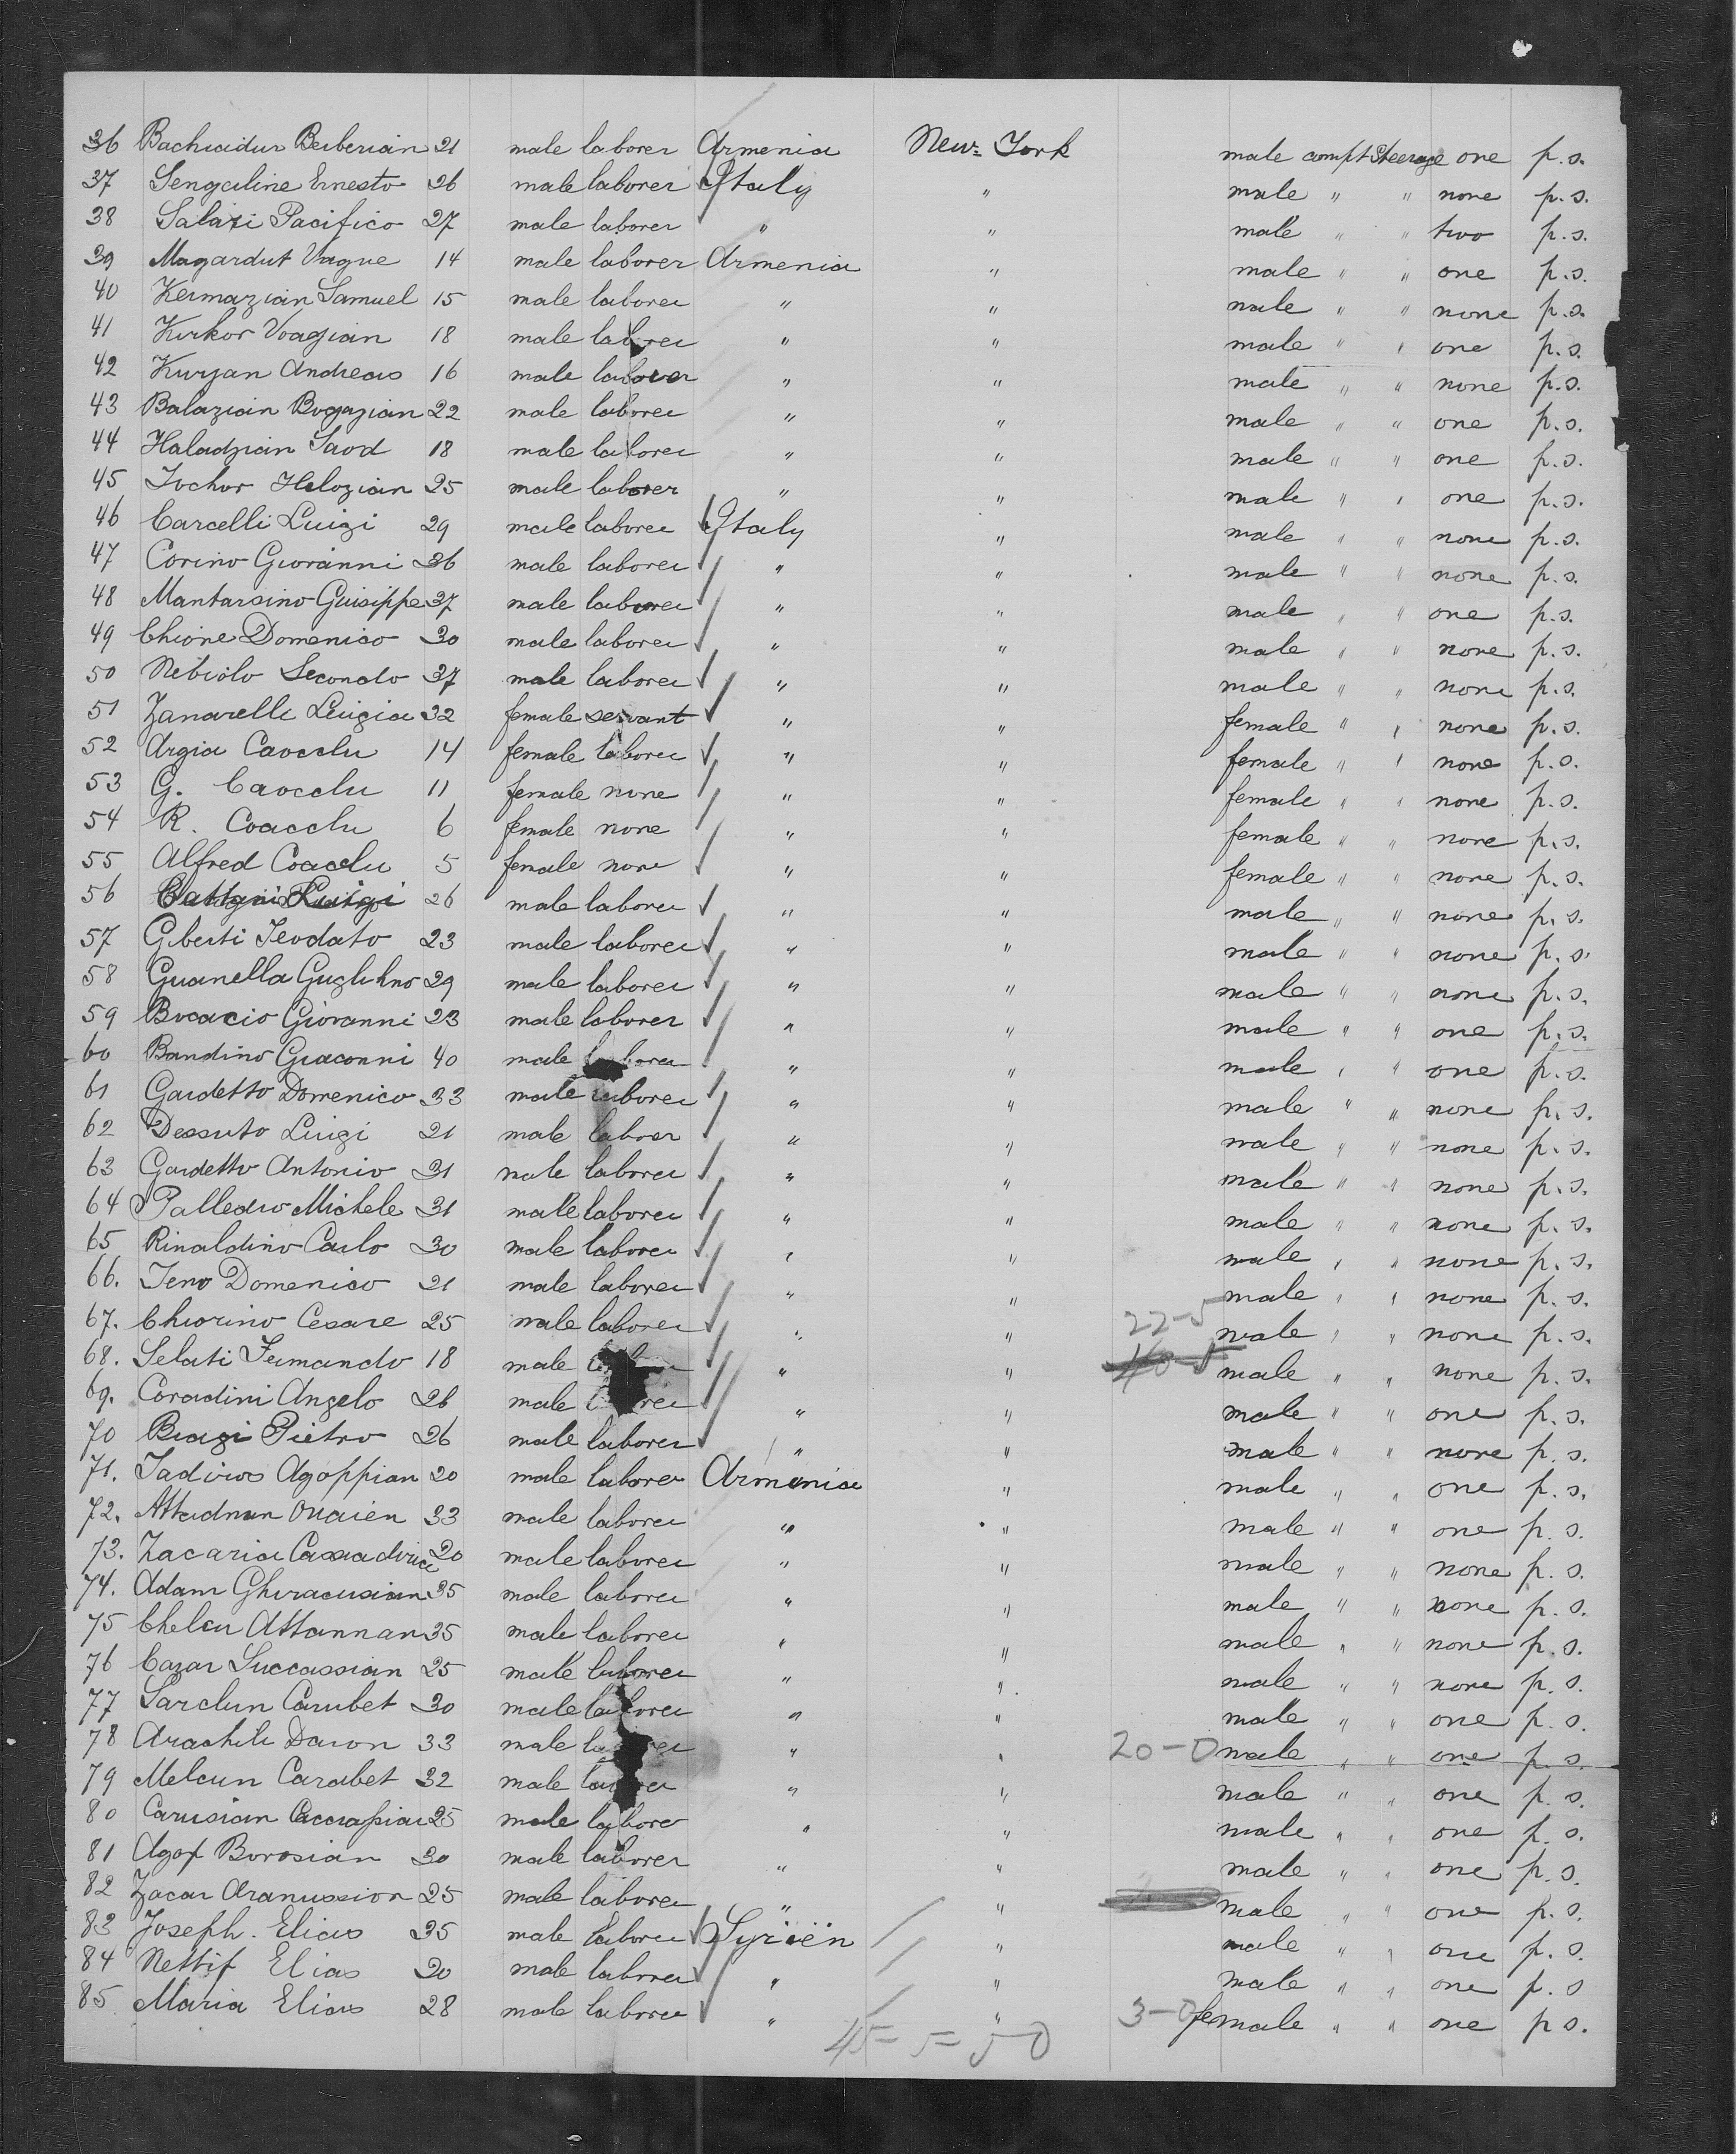 36 Bachadur Berberian 21 male laborer Armenia New-York male compt Steerage one p.s.
37 Sengaline Ernesto 26 male laborer Italy " male " " none p.s.
38 Salari Pacifico 27 male laborer " " male " " two p.s.
39 Magardut Vague 14 male laborer Armenia " male " " one p.s.
40 Kermazian Samuel 15 male laborer " " male " " none p.s.
41 Kirkor Voagian 18 male laborer " " male " " one p.s.
42 Kuryan Andreas 16 male laborer " " male " " none p.s.
43 Balazian Bogazian 22 male laborer " " male " " one p.s.
44 Haladzian Saod 18 male laborer " " male " " one p.s.
45 Tochor Helozian 25 male laborer " " male " " one p.s.
46 Carcelli Luigi 29 male laborer Italy " male " " none p.s.
47 Corino Giovanni 36 male laborer " " male " " none p.s.
48 Mantarsino Guisippe 37 male laborer " " male " " one p.s.
49 Chione Domenico 30 male laborer " " male " " none p.s.
50 Nebiolo Secondo 37 male laborer " " male " " none p.s.
51 Zanarelle Luigia 32 female servant " " female " " none p.s.
52 Argia Caocclu 14 female laborer " " female " " none p.s.
53 G. Caocclu 11 female none " " female " " none p.s.
54 R. Coacclu 6 female none " " female " " none p.s.
55 Alfred Coacclu 5 female none " " female " " none p.s.
56 Cattani Luigi 26 male laborer " " male " " none p.s.
57 Giberti Teodato 23 male laborer " " male " " none p.s.
58 Guanella Guglilmo 29 male laborer " " male " " none p.s.
59 Bocacio Giovanni 23 male laborer " " male " " one p.s.
60 Bandino Giaconni 40 male laborer " " male " " one p.s.
61 Gardetto Domenico 33 male laborer " " male " " none p.s.
62 Dessuto Luigi 21 male labrer " " male " " none p.s.
63 Gardetto Antonio 31 male laborer " " male " " none p.s.
64 Palledro Michele 31 male laborer " " male " " none p.s.
65 Rinaldino Carlo 30 male laborer " " male " " none p.s.
66. Teno Domenico 21 male laborer " " male " " none p.s.
67. Chiorino Cesare 25 male laborer " " 22-5 male " " none p.s.
68. Selati Fernando 18 male laborer " " male " " none p.s.
69. Coradini Angelo 26 male laborer " " male " " one p.s.
70 Biagi Pietro 26 male laborer " " male " " none p.s.
71. Tadiros Agoppian 20 male laborer Armenia " male " " one p.s.
72. Attadnan Ovaien 33 male laborer " " male " " one p.s.
73. Zacaria 20 male laborer " " male " " none p.s.
74. Adam Ghiracusian 35 male laborer " " male " " none p.s.
75 Cheleu Attannan 35 male laborer " " male " " none p.s.
76 Cazar Succassian 25 male laborer " " male " " none p.s.
77 Sarclun Carubet 30 male laborer " " male " " one p.s.
78 Arachile Daron 33 male laborer " " 20-0 male " " one p.s.
79 Melcun Carabet 32 male laborer " " male " " one p.s.
80 Carusian Caccrapian 25 male laborer " " male " " one p.s.
81 Agop Borosian 30 male laborer " " male " " one p.s.
82 Zacar Aranussion 25 male laborer " " male " " one p.s.
83 Joseph. Elias 35 male laborer Syriën " male " " one p.s.
84 Nettif Elias 20 male laborer " " male " " one p.s
85 Maria Elias 28 male laborer " " 3-0 female " " one p s.
45-5=50